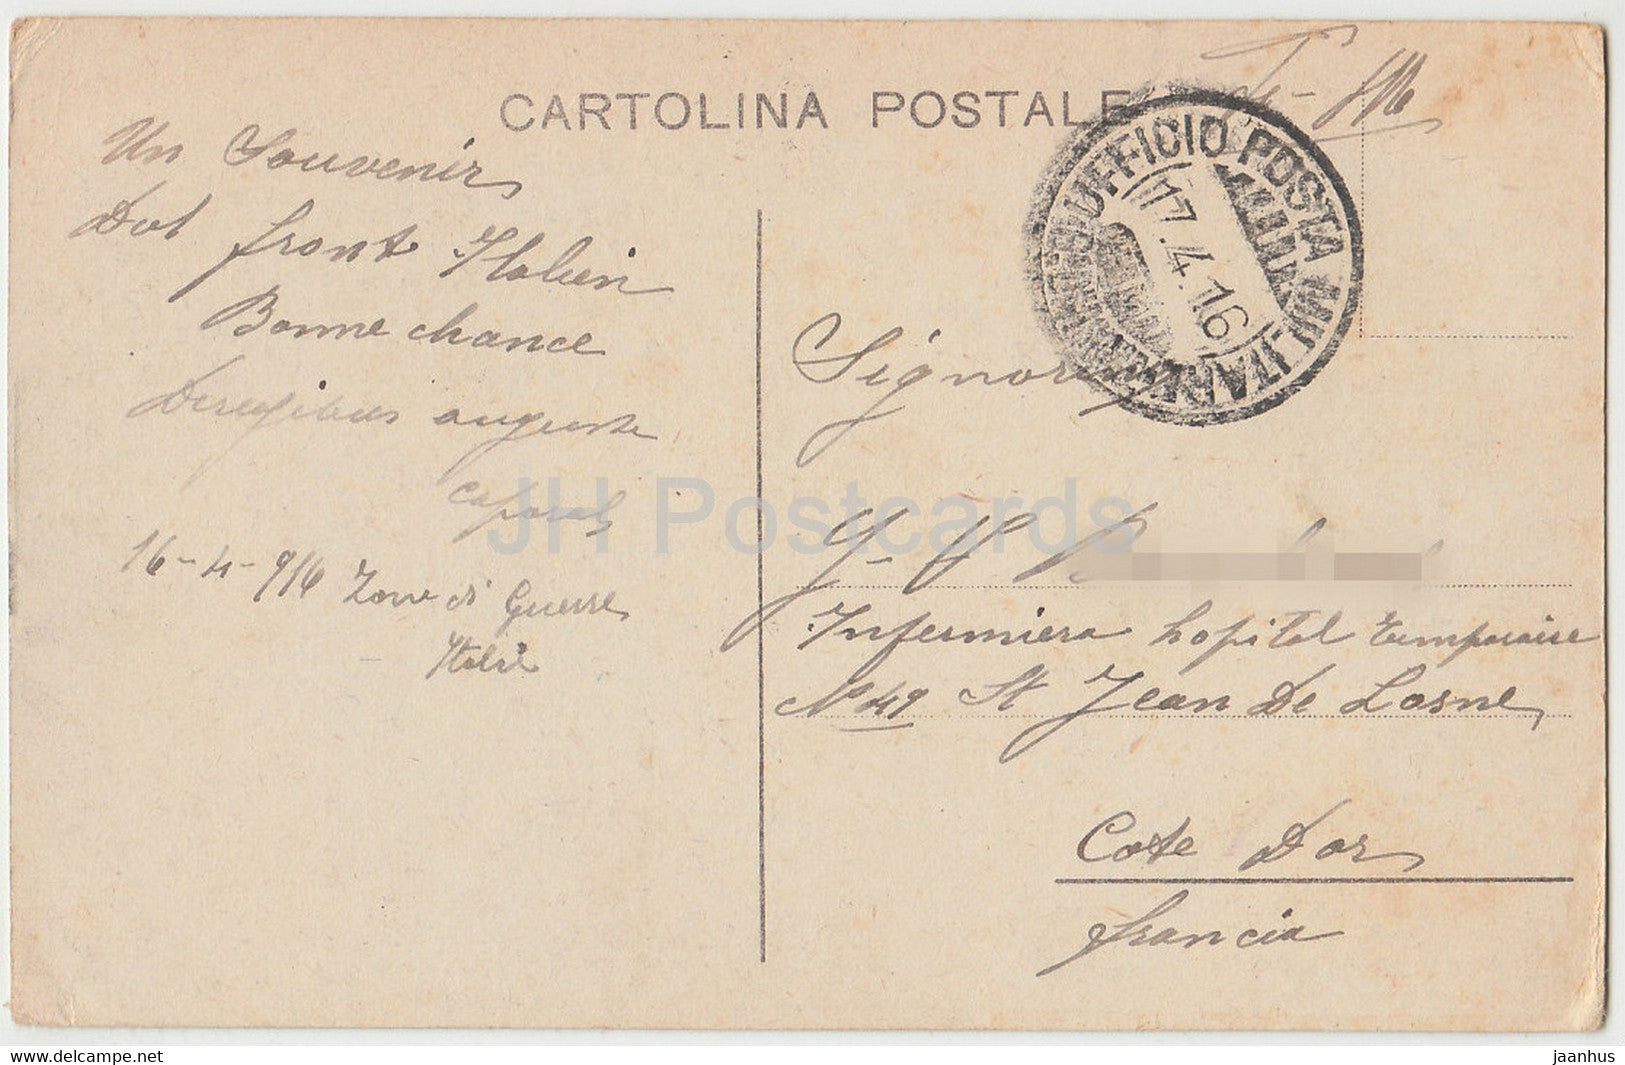 CARTOLINA POSTALE
Un Souvenir
Dul front Italien
Bonne chance
auguste
caporal
16-4-916 Zone di Guerre
Italie
UFFICIO POSTA MILITARE
17.4.16
Signora
Infermiera hopital temporaire
N 49 St Jean De Losne
Cote Dor
francia
JH Postcards
© delcampe.net
jaanhus